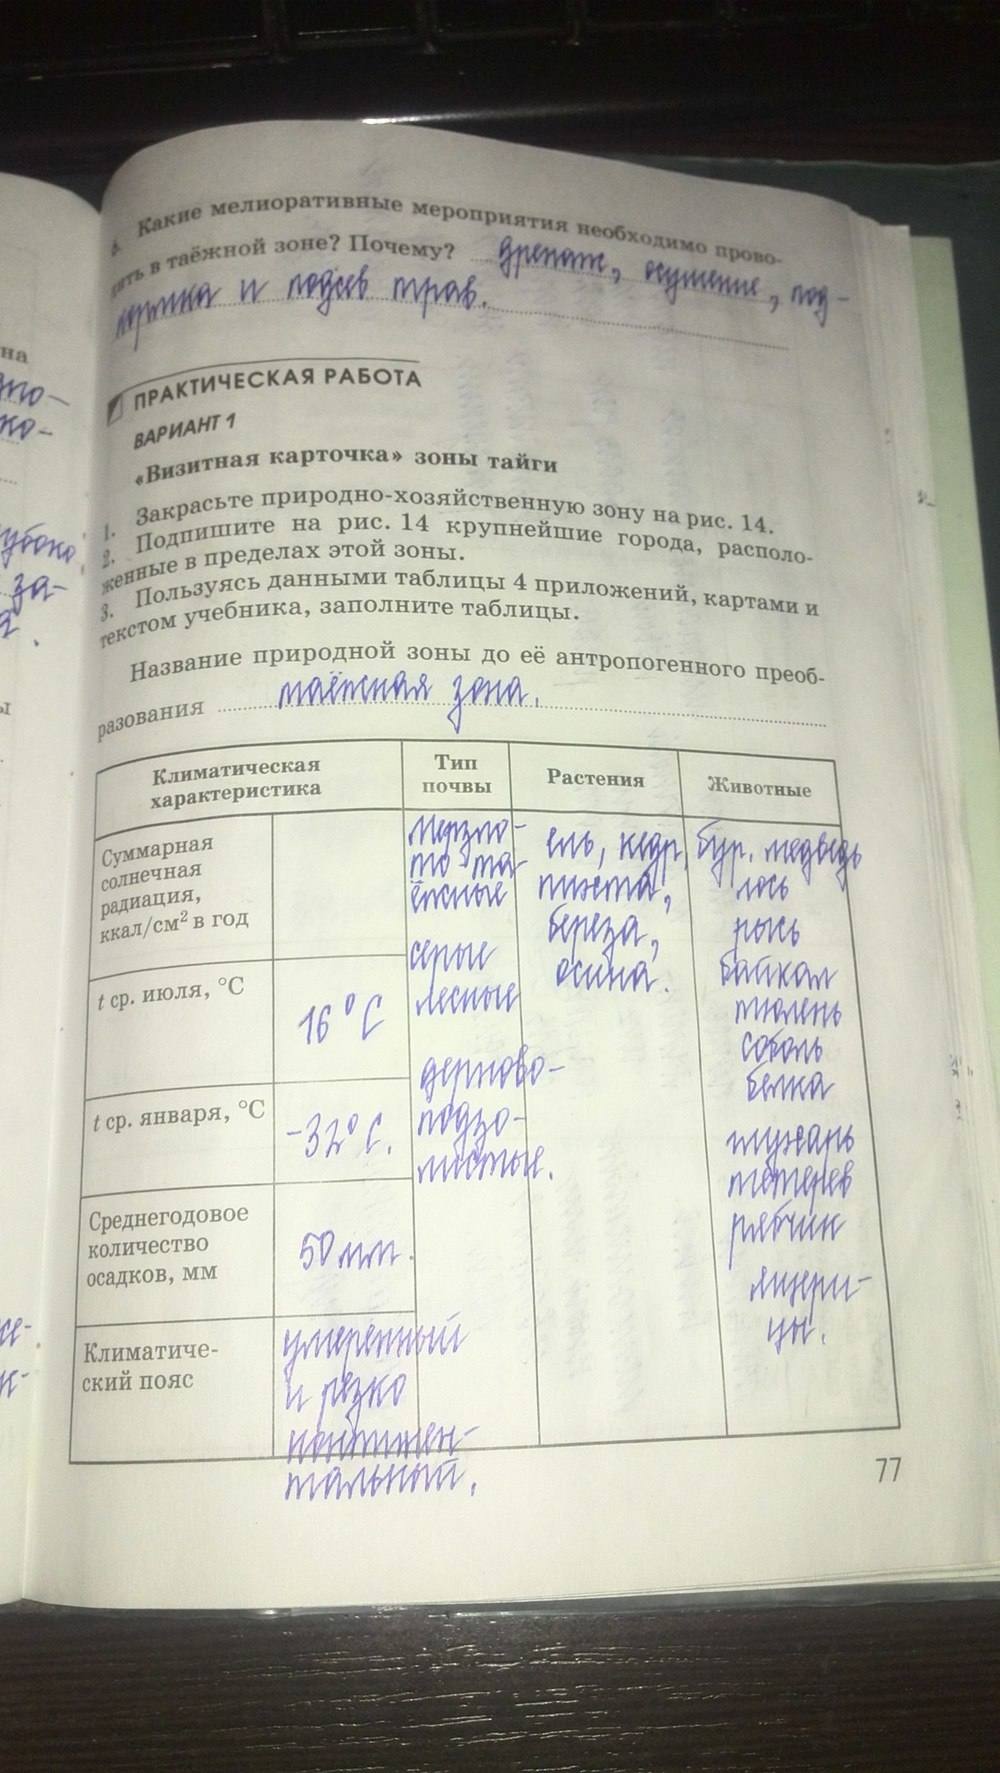 Какие мелиоративные мероприятия необходимо прово-
дить в таёжной зоне? Почему? дренаж, осушение, под-
кормка и подсев трав.
на
ПРАКТИЧЕСКАЯ РАБОТА
ВАРИАНТ 1
«Визитная карточка» зоны тайги
1. Закрасьте природно-хозяйственную зону на рис. 14.
2. Подпишите на рис. 14 крупнейшие города, располо-
женные в пределах этой зоны.
3. Пользуясь данными таблицы 4 приложений, картами и
текстом учебника, заполните таблицы.
Название природной зоны до её антропогенного преоб-
разования таёжная зона.
Климатическая
характеристика
Тип
почвы
Растения
Животные
Суммарная
солнечная
радиация,
ккал/см² в год
t ср. июля, °C
16°C
t ср. января, °C
-32°C.
Среднегодовое
количество
осадков, мм
50 мм.
Климатиче-
ский пояс
умеренный
и резко
континен-
тальный.
мерзло-
то-та
ёжные
серые
лесные
дерново-
подзо-
листые.
ель, кедр,
пихта,
береза,
осина.
бур. медведь
лось
рысь
байкал
тюлень
соболь
белка
глухарь
тетерев
рябчик
ящери-
цы.
77